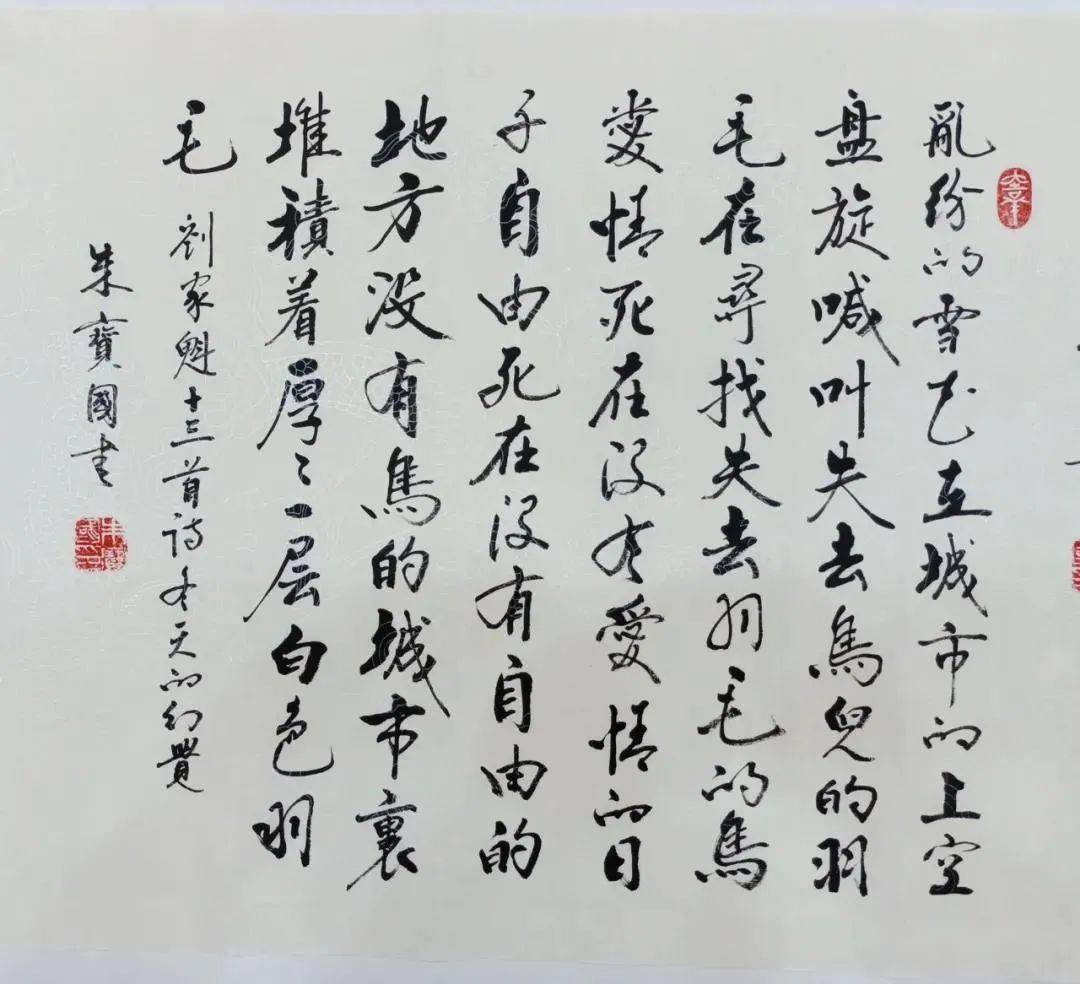 亂份的雪花在城市的上空
盘旋喊叫失去鳥兒的羽
毛在尋找失去羽毛的鳥
愛情死在没有愛情的日
子自由死在没有自由的
地方没有鳥的城市裏
堆積着厚〻一层白色羽
毛
劉家魁十三首詩冬天的幻覺
朱寶國書